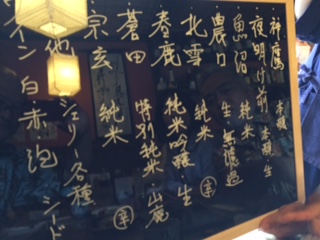 神鷹 本醸
夜明け前 本醸 生
魚沼 純米
農口 生 無濾過
北雪 純米
春鹿 純米吟醸 生
蒼田 特別純米 山廃
宗玄 純米
他 シェリー各種 シード
ワイン 白・赤・泡